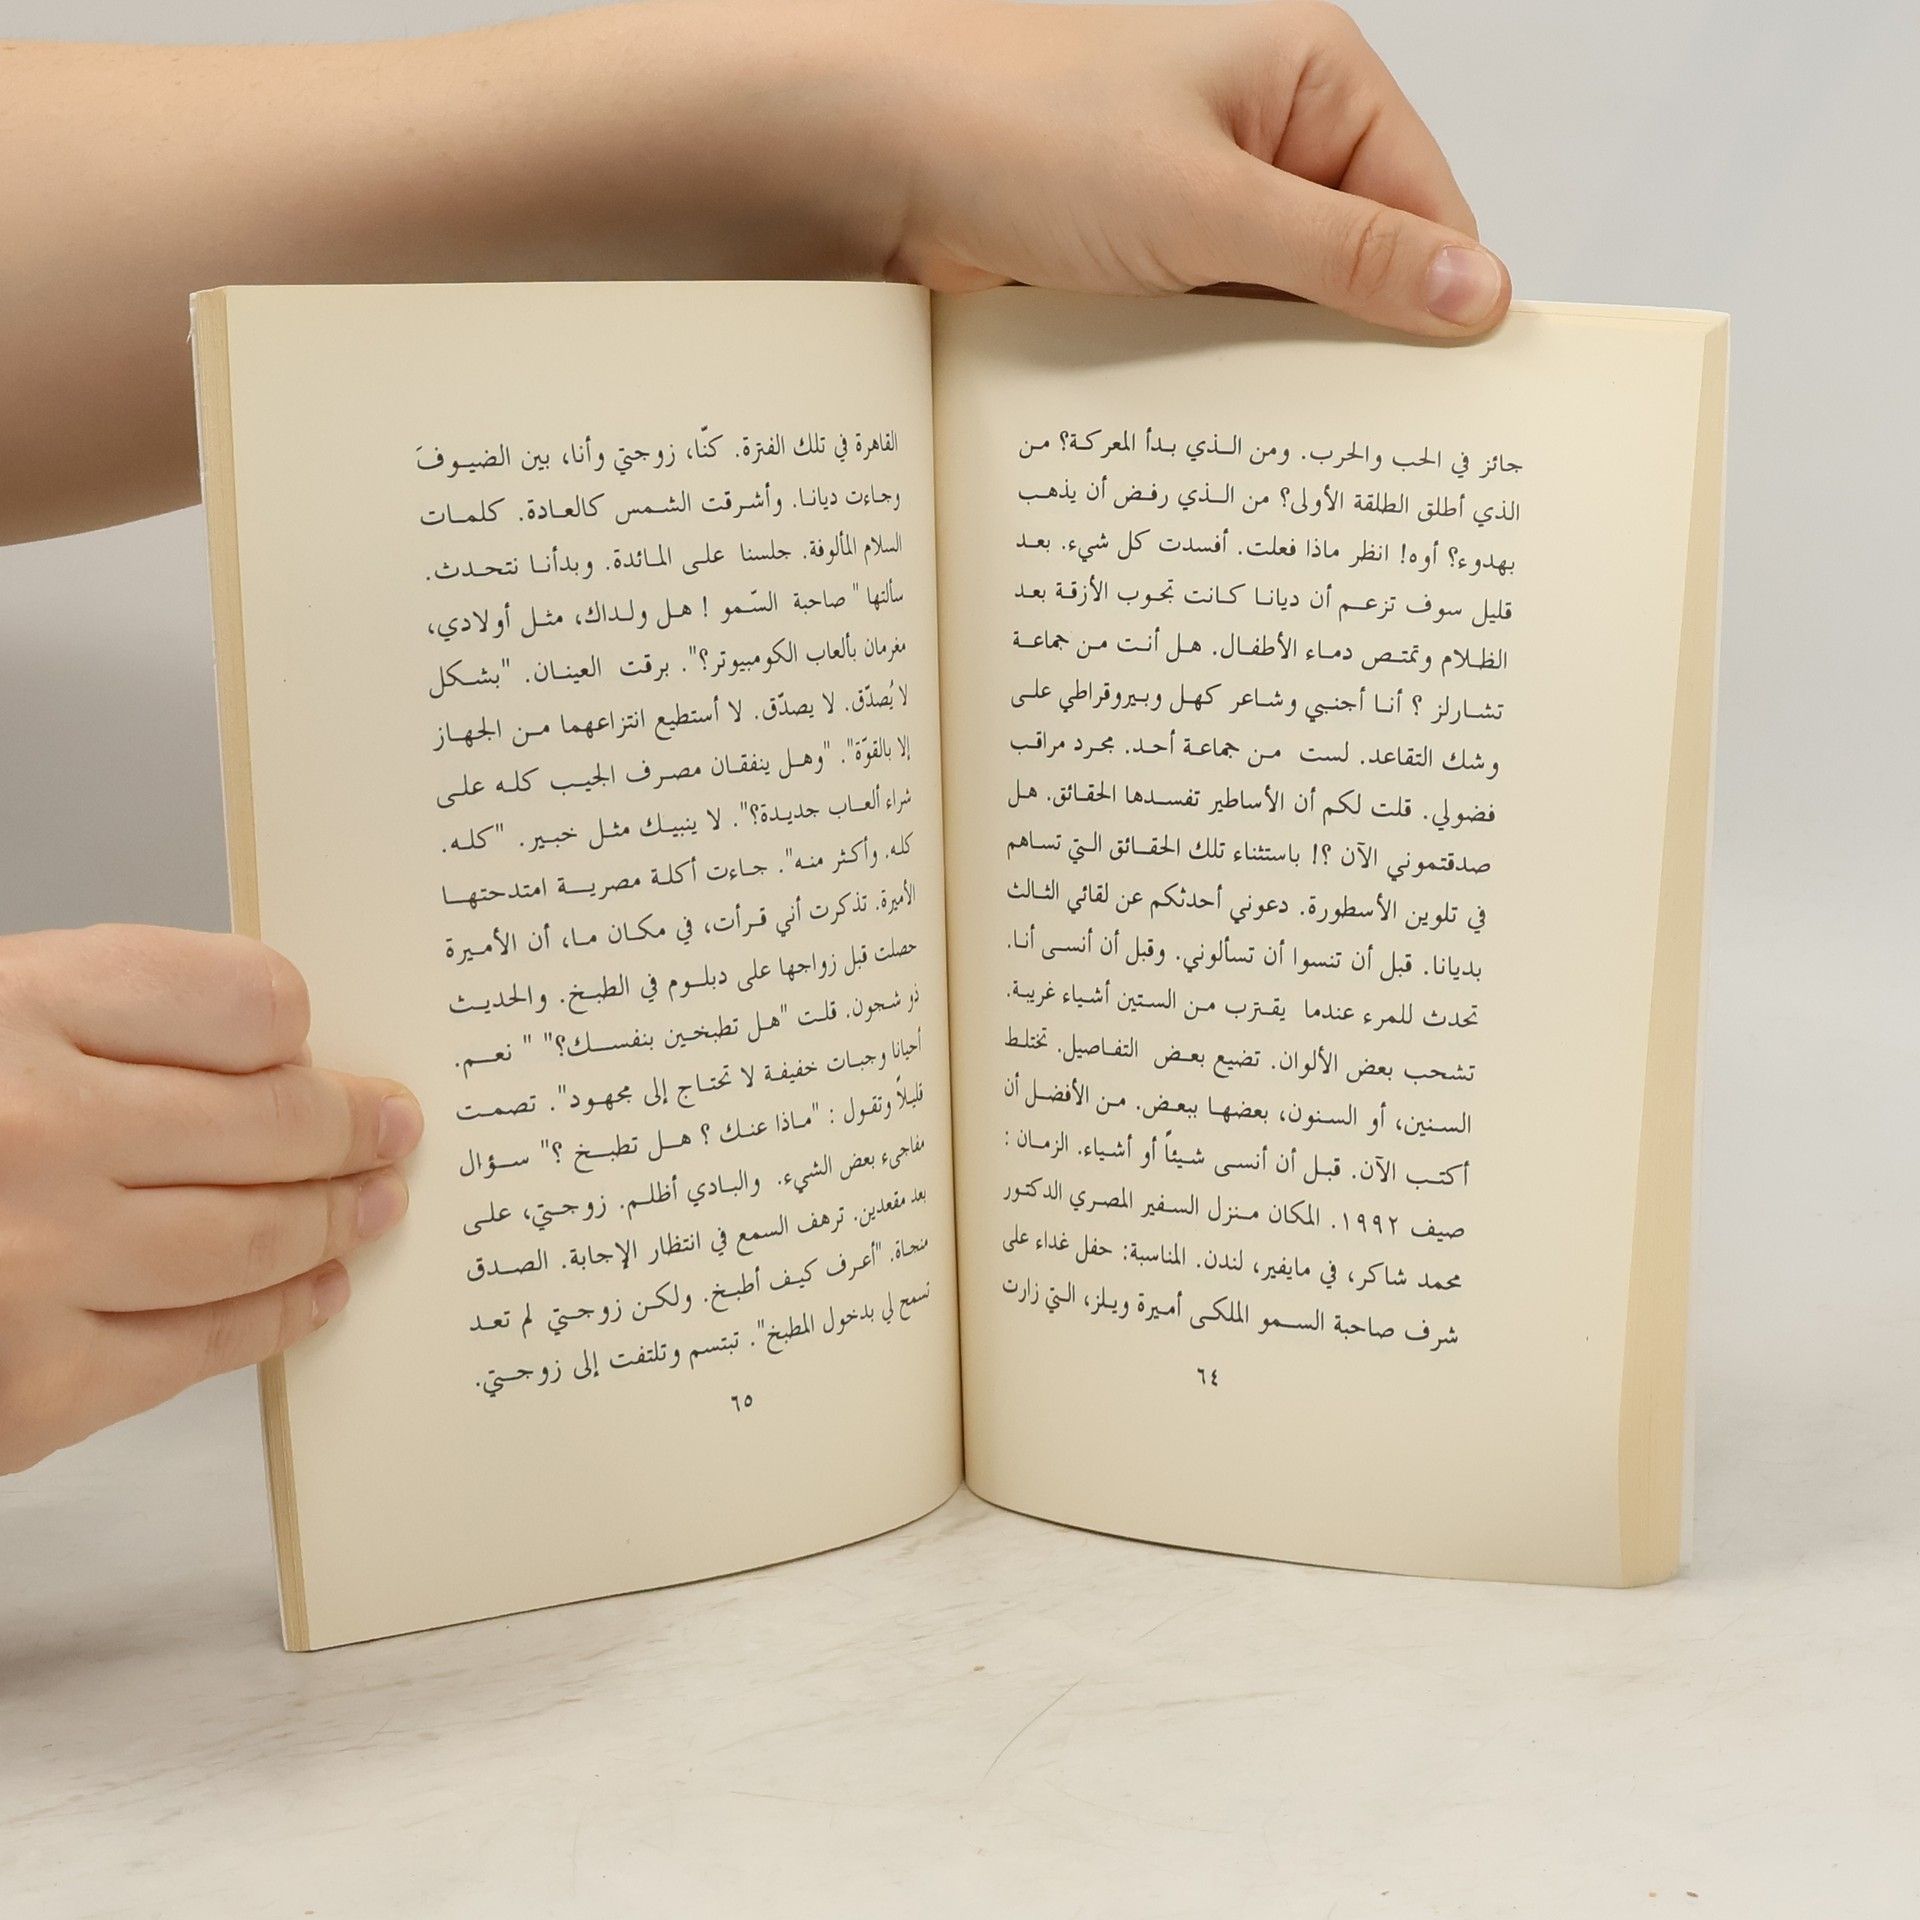 جائز في الحب والحرب. ومن الذي بدأ المعركة؟ من
الذي أطلق الطلقة الأولى؟ من الذي رفض أن يذهب
بهدوء؟ أوه! انظر ماذا فعلت. أفسدت كل شيء. بعد
قليل سوف تزعم أن ديانا كانت تجوب الأزقة بعد
الظلام وتمتص دماء الأطفال. هل أنت من جماعة
تشارلز ؟ أنا أجنبي وشاعر كهل وبيروقراطي على
وشك التقاعد. لست من جماعة أحد. مجرد مراقب
فضولي. قلت لكم أن الأساطير تفسدها الحقائق. هل
صدقتموني الآن ؟! باستثناء تلك الحقائق التي تساهم
في تلوين الأسطورة. دعوني أحدثكم عن لقائي الثالث
بديانا. قبل أن تنسوا أن تسألوني. وقبل أن أنسى أنا.
تحدث للمرء عندما يقترب من الستين أشياء غريبة.
تشحب بعض الألوان. تضيع بعض التفاصيل. تختلط
السنين، أو السنون، بعضها ببعض. من الأفضل أن
أكتب الآن. قبل أن أنسى شيئاً أو أشياء. الزمان :
صيف ١٩٩٢. المكان منزل السفير المصري الدكتور
محمد شاكر، في مايفير، لندن. المناسبة: حفل غداء على
شرف صاحبة السمو الملكى أميرة ويلز، التي زارت
٦٤
القاهرة في تلك الفترة. كنّا، زوجتي وأنا، بين الضيوفَ
وجاءت ديانا. وأشرقت الشمس كالعادة. كلمات
السلام المألوفة. جلسنا على المائدة. وبدأنا نتحدث.
سألتها "صاحبة السّمو ! هل ولداك، مثل أولادي،
مغرمان بألعاب الكومبيوتر؟". برقت العينان. "بشكل
لا يُصدّق. لا يصدّق. لا أستطيع انتزاعهما من الجهاز
إلا بالقوّة". "وهل ينفقان مصرف الجيب كله على
شراء ألعاب جديدة؟". لا ينبيك مثل خبير. "كله.
كله. وأكثر منه". جاءت أكلة مصرية امتدحتها
الأميرة. تذكرت أني قرأت، في مكان ما، أن الأميرة
حصلت قبل زواجها على دبلوم في الطبخ. والحديث
ذو شجون. قلت "هل تطبخين بنفسك؟" " نعم.
أحيانا وجبات خفيفة لا تحتاج إلى مجهود". تصمت
قليلاً وتقول : "ماذا عنك ؟ هل تطبخ ؟" سؤال
مفاجىء بعض الشيء. والبادي أظلم. زوجتي، على
بعد مقعدين. ترهف السمع في انتظار الإجابة. الصدق
منجاة. "أعرف كيف أطبخ. ولكن زوجتي لم تعد
تسمح لي بدخول المطبخ". تبتسم وتلتفت إلى زوجتي.
٦٥